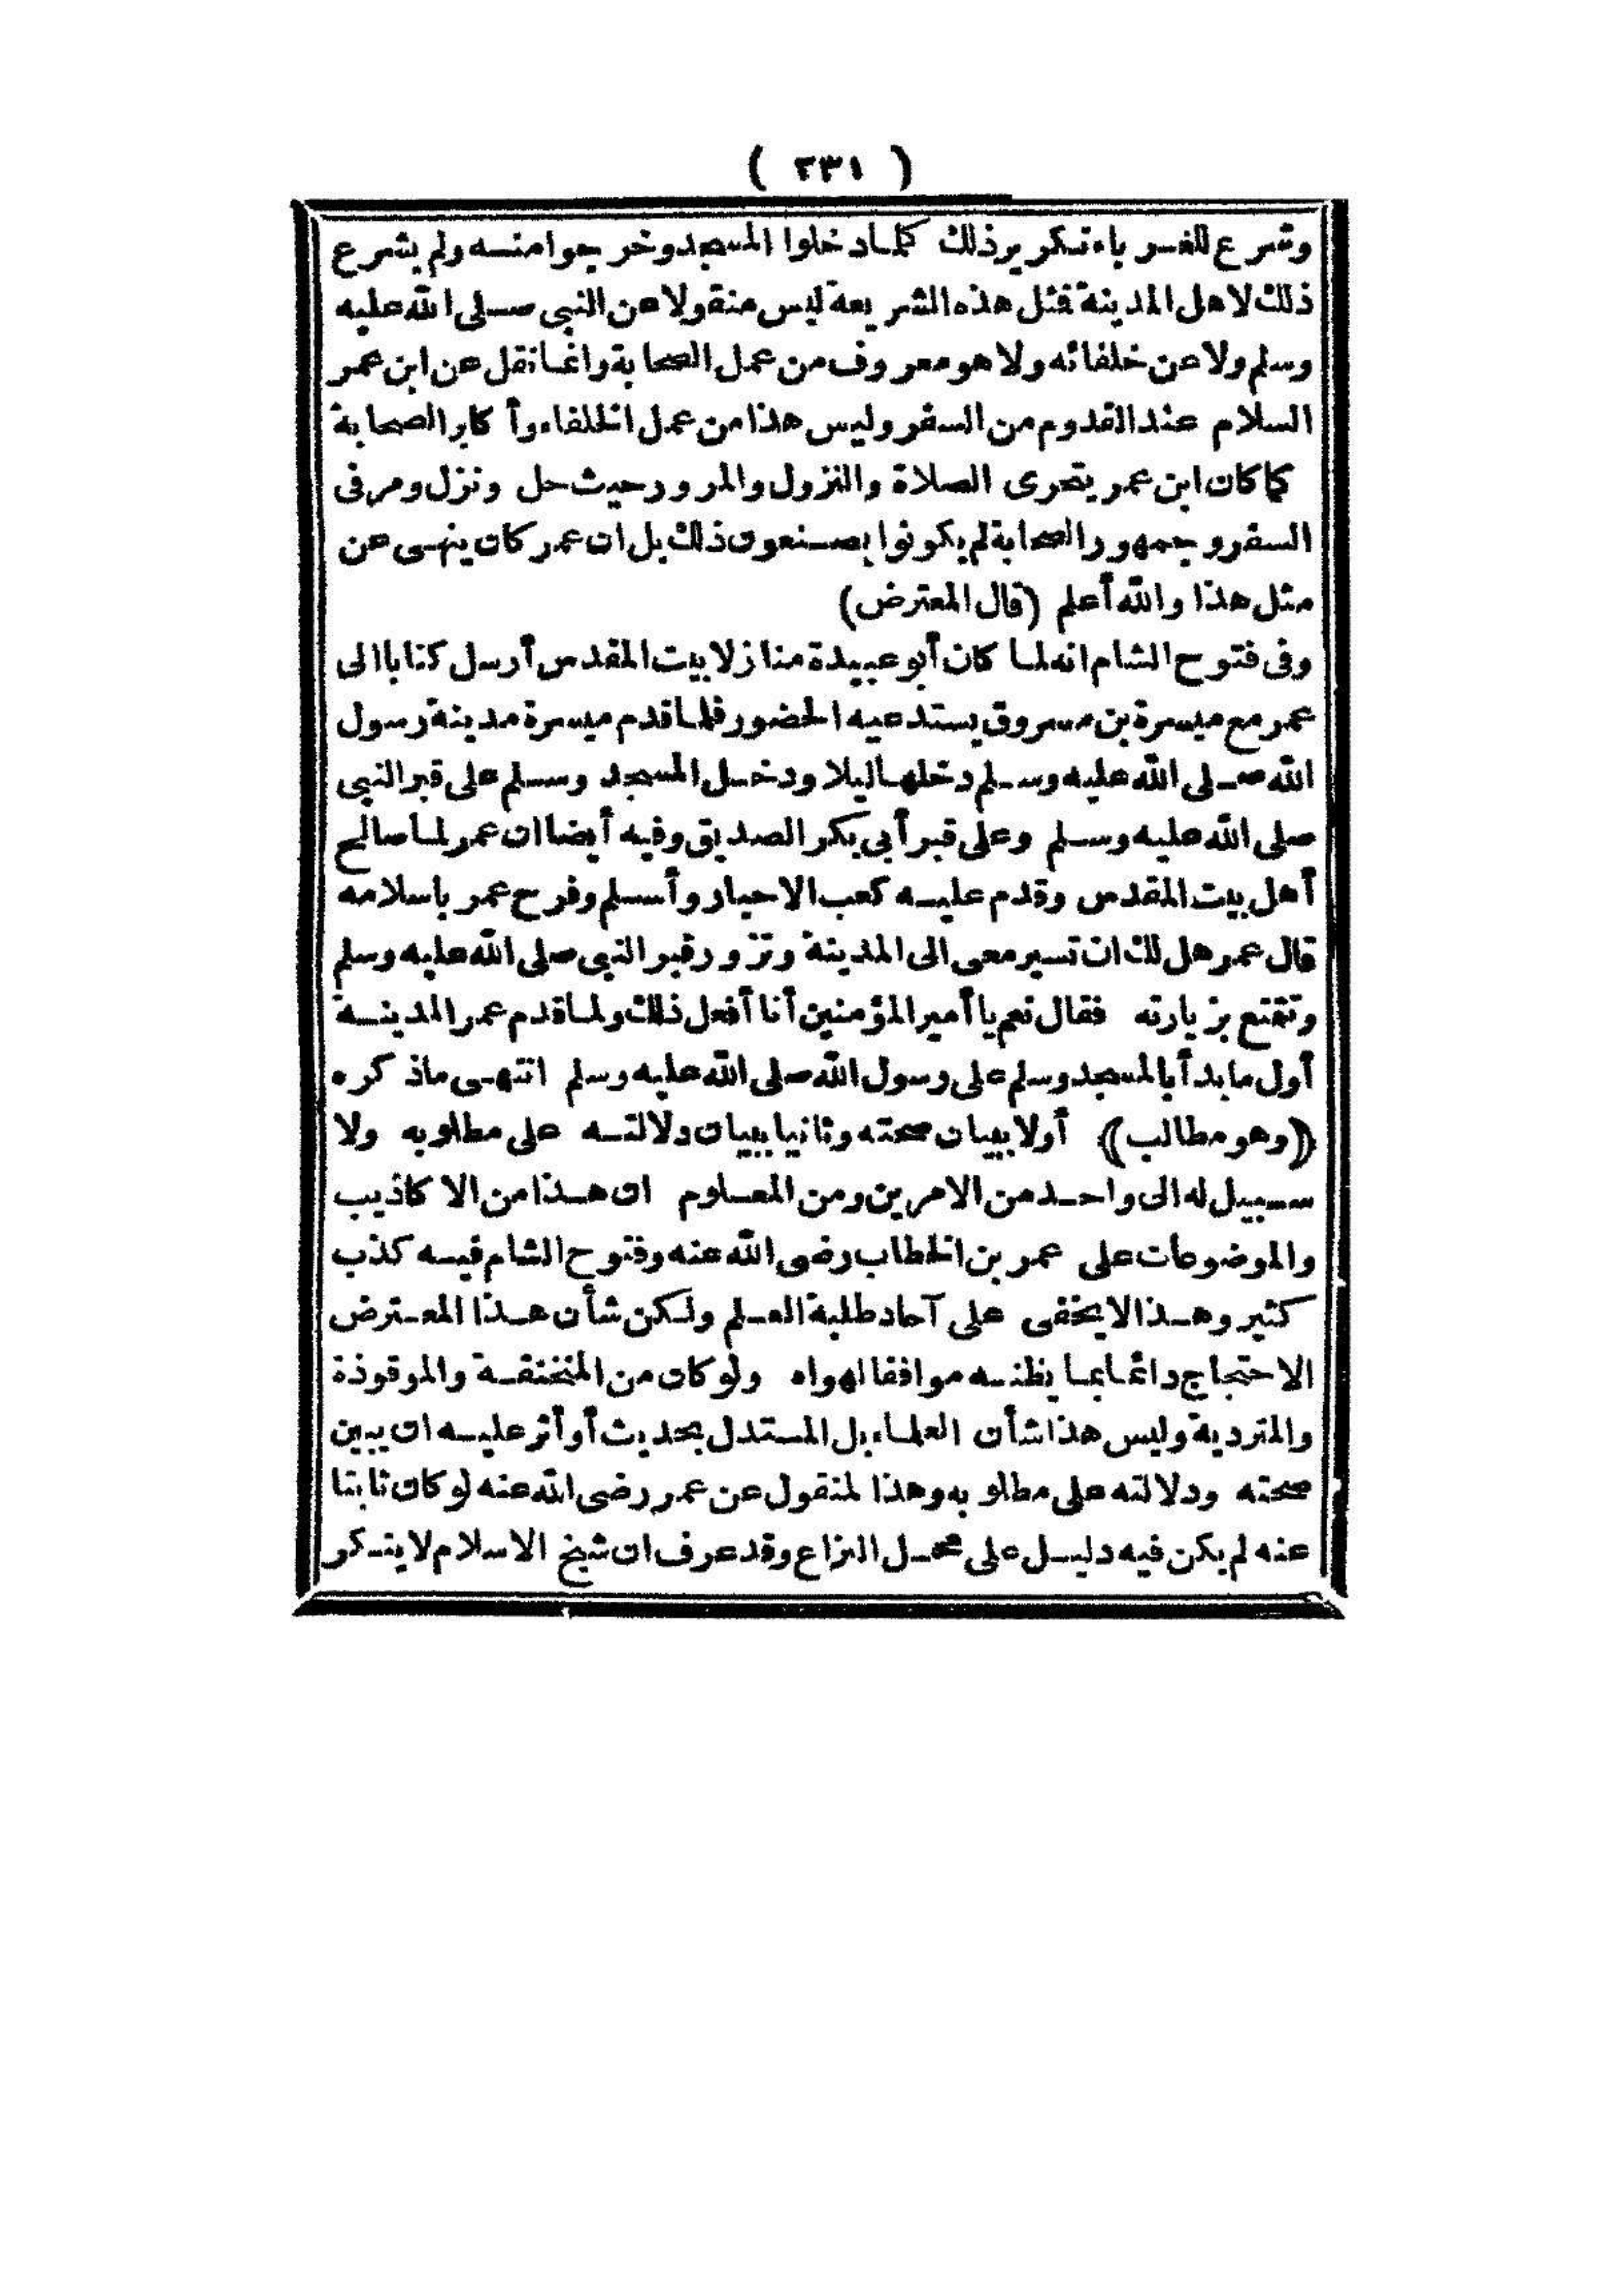 ( ٢٣١ )
وشرع للغرباء تكرير ذلك كلما دخلوا المسجد وخرجوا منه ولم يشرع
ذلك لاهل المدينة فمثل هذه الشريعة ليس منقولا عن النبي صلى الله عليه
وسلم ولا عن خلفائه ولا هو معروف من عمل الصحابة وانما نقل عن ابن عمر
السلام عند القدوم من السفر وليس هذا من عمل الخلفاء وأكابر الصحابة
كما كان ابن عمر يتحرى الصلاة والنزول والمرور حيث حل ونزل ومر فى
السفر وجمهور الصحابة لم يكونوا يصنعون ذلك بل ان عمر كان ينهى عن
مثل هذا والله أعلم (قال المعترض)
وفى فتوح الشام انه لما كان أبو عبيدة منازلا بيت المقدس أرسل كتابا الى
عمر مع ميسرة بن مسروق يستدعيه الحضور فلما قدم ميسرة مدينة رسول
الله صلى الله عليه وسلم دخلها ليلا ودخل المسجد وسلم على قبر النبى
صلى الله عليه وسلم وعلى قبر أبى بكر الصديق وفيه أيضا ان عمر لما صالح
أهل بيت المقدس وقدم عليه كعب الاحبار وأسلم وفرح عمر باسلامه
قال عمر هل لك ان تسير معى الى المدينة وتزور قبر النبى صلى الله عليه وسلم
وتتمتع بزيارته فقال نعم يا أمير المؤمنين أنا أفعل ذلك ولما قدم عمر المدينة
أول ما بدأ بالمسجد وسلم على رسول الله صلى الله عليه وسلم انتهى ماذكره
((وهو مطالب)) أولا ببيان صحته وثانيا ببيان دلالته على مطلوبه ولا
سبيل له الى واحد من الامرين ومن المعلوم ان هذا من الاكاذيب
والموضوعات على عمر بن الخطاب رضى الله عنه وفتوح الشام فيه كذب
كثير وهذا لا يخفى على آحاد طلبة العلم ولكن شأن هذا المعترض
الاحتجاج دائما بما يظنه موافقا لهواه ولو كان من المنخنقة والموقوذة
والمتردية وليس هذا شأن العلماء بل المستدل بحديث أو أثر عليه ان يبين
صحته ودلالته على مطلوبه وهذا لمنقول عن عمر رضى الله عنه لو كان ثابتا
عنه لم يكن فيه دليل على محل النزاع وقد عرف ان شيخ الاسلام لا ينكر